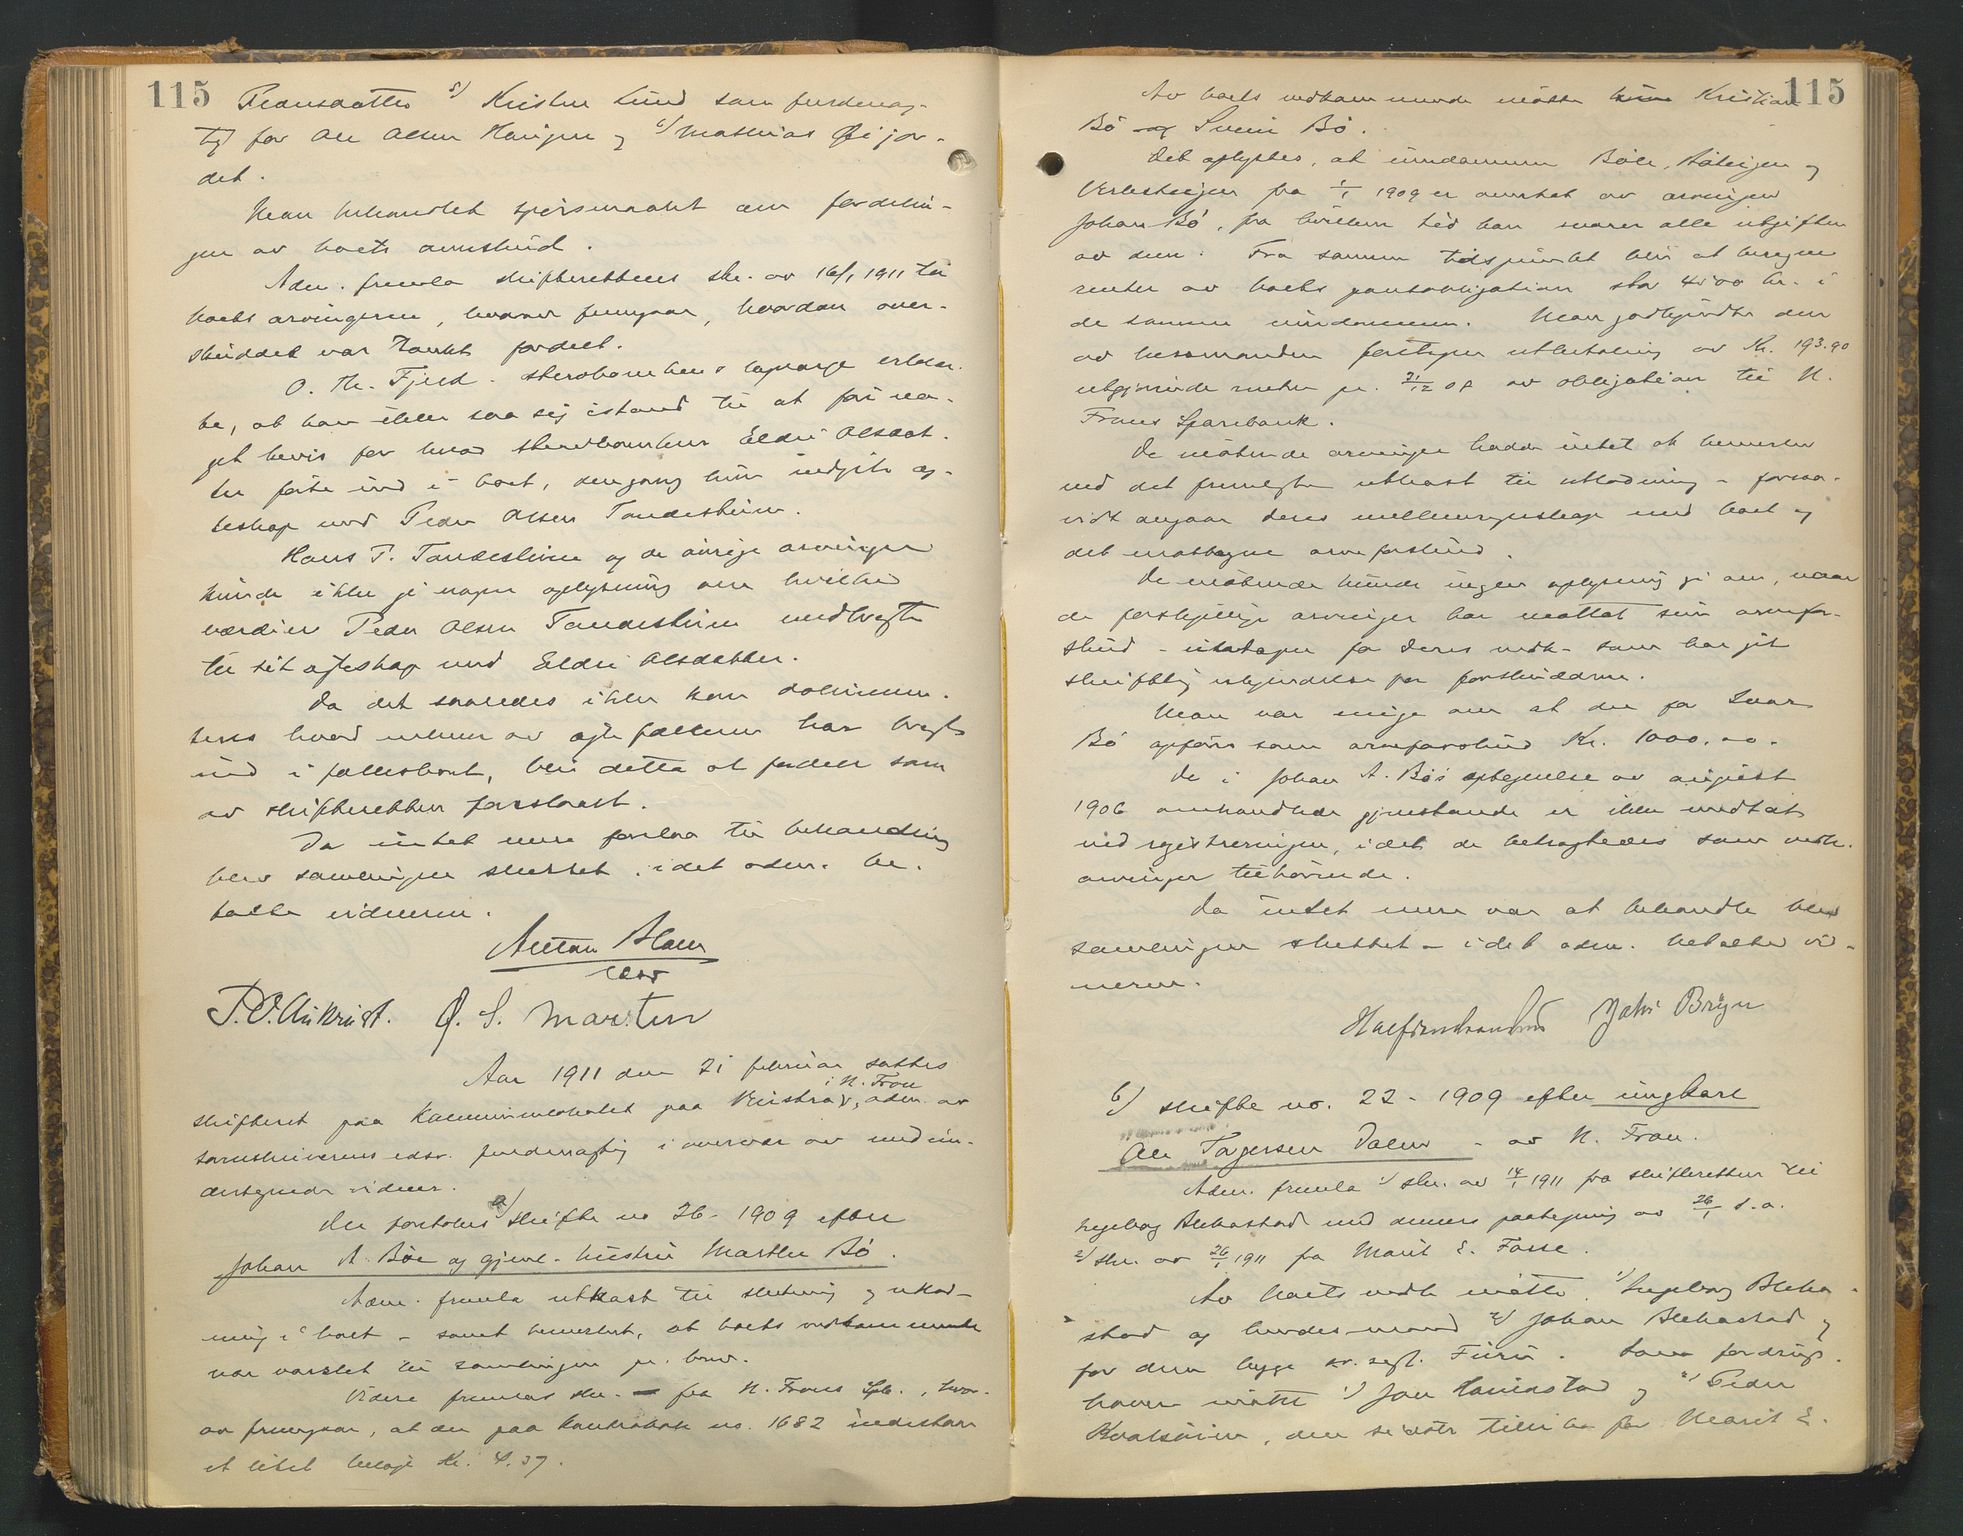 115
Pedersdatter 5) Kristen Lund som fuldmæg-
tig for Ole Olsen Haugen og 6) Mathias Øijor-
det.
Man behandlet spørsmaalet om fordelin-
gen av boets overskud.
Adm. fremla skifterettens skr. av 16/1 1911 til
boets arvingerne, hvorav fremgaar, hvordan over-
skuddet var tænkt fordelt.
O. Th. Fjeld. sterbboenkens laugværge erklær-
te, at han ikke saa sig istand til atføre no-
get bevis for hvad sterbboenken Eldri Olsdat-
ter førte ind i boet, dengang hun indgik eg-
teskap med Peder Olsen Tandesheim.
Hans P. Tandesheim og de øvrige arvinger
kunde ikke gi nogen oplysning om hvilke
værdier Peder Olsen Tandesheim medbragte
til sit egteskap med Eldri Olsdatter.
Da det saaledes ikke kan dokumen-
teres hvad enhver av egtefællerne har bragt
ind i fællesboet, blir dette at fordele som
av skifteretten foreslaat.
Da intet mere forelaa til behandling
blev samlingen sluttet, idet adm. be-
talte vidnerne.
Anton Alm
edsv
P. O. Aukrust. O. S. Marstein
Aar 1911 den 21 februar sattes
skifteret paa Kommunelokalet paa Vinstra i N. Fron, adm. av
sorenskriverens edsv. fuldmægtig i overvær av medun-
dertegnede vidner.
Der foretokes a) skifte no 26 - 1909 efter
Johan A. Bøe og gjenl. hustru Marthe Bø.
Adm. fremla utkast til slutning og utlod-
ning i boet - samt bemerket, at boets vedkommende
var varslet til samlingen pr. brev.
Videre fremlas skr. fra N. Frons Spb., hvor-
av fremgaar, at der paa kontrabok no. 1682 indestaar
et litet beløp Kr. 4.37.
115
Av boets vedkommende møtte Kristian
Bø og Svein Bø.
Det oplystes, at eiendommen Bøle, Bøteigen og
Verkesteigen fra 1/1 1909 er overtat av arvingen
Johan Bø, fra hvilken tid han svarer alle utgifter
av den. Fra samme tidspunkt blir at beregne
renter av boets pantobligation stor 4500 kr. i
de samme eiendommen. Man godkjendte den
av bessmanden foretagne utbetaling av Kr. 193.90
utgjørende renter pr. 31/12 08 av obligation til N.
Frons Sparebank.
De møtende arvinger hadde intet at bemerke
ved det fremlagte utkast til utlodning - forsaa-
vidt angaar deres mellemregnskap med boet og
det mottagne arveforskud.
De møtende kunde ingen oplysning gi om, naar
de forskjellige arvinger har mottat sin arvefor-
skud - undtagen for deres vedk. som har git
skriftlig erkjendelse for forskuddene.
Man var enige om at der for Ivar
Bø opføres som arveforskud Kr. 1000.00.
De i Johan A. Bøs optegnelse av august
1906 omhandlede gjenstande er ikke medtat
ved registreringen, idet de betragtedes som vedk.
arvinger tilhørende.
Da intet mere var at behandle blev
samlingen sluttet - idet adm. betalte vid-
nerne.
Johs Bryn
b) skifte no. 22 - 1909 efter ungkarl
Ole Torgersen Dalen - av N. Fron.
Adm. fremla 1) skr. av 14/1 1911 fra skifteretten til
Ingeborg Blekastad med dennes paategning av 26/1 s.a.
2) skr. av 26/1 1911 fra Marit E. Fosse.
Av boets vedk møtte 1) Ingeborg Bleka-
stad og hendes mand 2) Johan Blekastad og
for dem begge sr. sagf. Furu. Som fordrings-
havere møtte 1) Jon Harildstad og 2) Peder
Kvalsheim, den sidste tillike for Marit E.